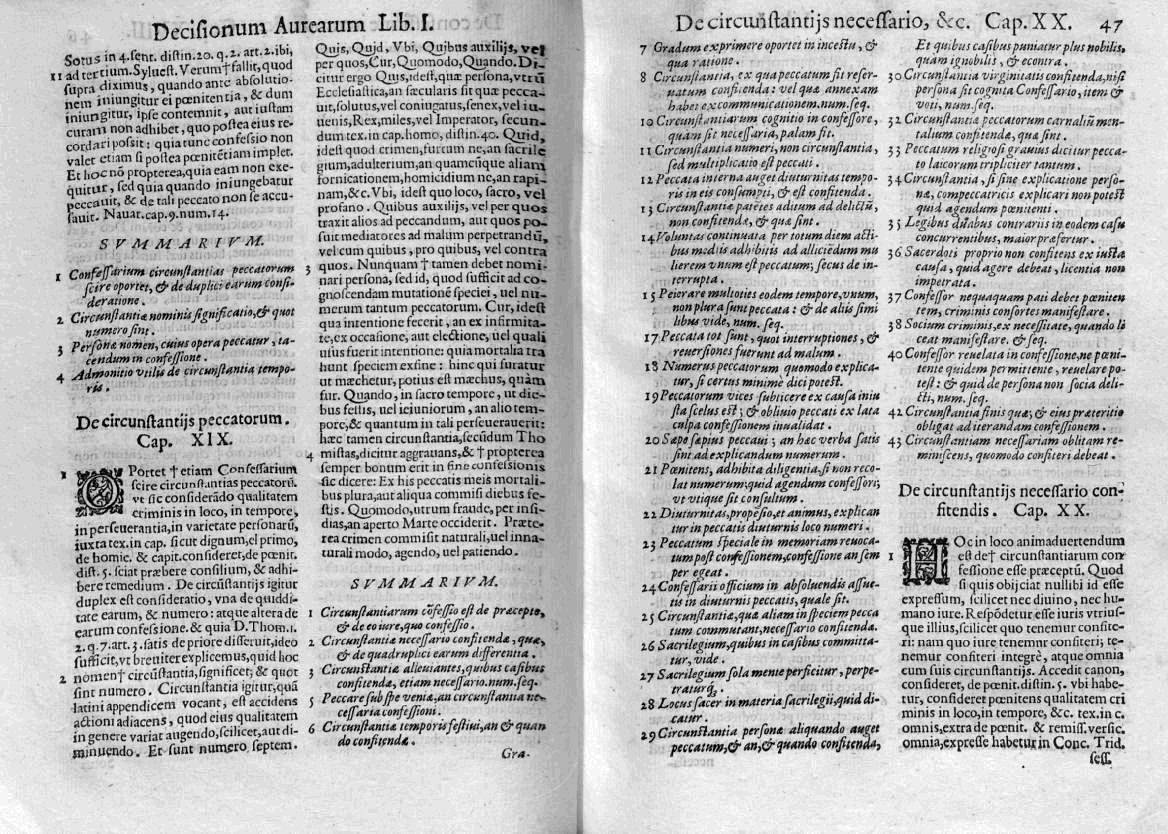 Decisionum Aurearum Lib. I.
Sotus in 4. sent. distin. 20. q. 2. art. 2. ibi,
11 ad tertium. Syluest. Verum † fallit, quod
supra diximus, quando ante absolutio-
nem iniungitur ei pœnitentia, & dum
iniungitur, ipse contemnit, aut iustam
curam non adhibet, quo postea eius re-
cordari possit: quia tunc confessio non
valet etiam si postea pœnitētiam implet.
Et hoc nō propterea, quia eam non exe-
quitur, sed quia quando iniungebatur
peccauit, & de tali peccato non se accu-
sauit. Nauar. cap. 9. num. 14.
SVMMARIVM.
1 Confessarium circunstantias peccatorum
scire oportet, & de duplici earum consi-
deratione.
2 Circunstantiæ nominis significatio, & quot
numero sint.
3 Personæ nomen, cuius opera peccatur, ta-
cendum in confessione.
4 Admonitio vtilis de circunstantia tempo-
ris.
De circunstantijs peccatorum.
Cap. XIX.
1 OPortet † etiam Confessarium
scire circunstantias peccatorū.
vt sic considerādo qualitatem
criminis in loco, in tempore,
in perseuerantia, in varietate personarū,
iuxta tex. in cap. sicut dignum, el primo,
de homic. & capit. consideret, de pœnit.
dist. 5. sciat præbere consilium, & adhi-
bere remedium. De circūstantijs igitur
duplex est consideratio, vna de quiddi-
tate earum, & numero: atque altera de
earum confessione. & quia D. Thom. 1.
2. q. 7. art. 3. satis de priore disseruit, ideo
sufficit, vt breuiter explicemus, quid hoc
2 nomen † circūstantia, significet; & quot
sint numero. Circunstantia igitur, quā
latini appendicem vocant, est accidens
actioni adiacens, quod eius qualitatem
in genere variat augendo, scilicet, aut di-
minuendo. Et sunt numero septem.
Quis, Quid, Vbi, Quibus auxilijs, vel
per quos, Cur, Quomodo, Quando. Di-
citur ergo Quis, idest, quæ persona, vtrū
Ecclesiastica, an sæcularis sit quæ pecca-
uit, solutus, vel coniugatus, senex, vel iu-
uenis, Rex, miles, vel Imperator, secun-
dum tex. in cap. homo, distin. 40. Quid,
idest quod crimen, furtum ne, an sacrile
gium, adulterium, an quamcūque aliam
fornicationem, homicidium ne, an rapi-
nam, &c. Vbi, idest quo loco, sacro, vel
profano. Quibus auxilijs, vel per quos
traxit alios ad peccandum, aut quos po-
suit mediatores ad malum perpetrandū,
vel cum quibus, pro quibus, vel contra
3 quos. Nunquam † tamen debet nomi-
nari persona, sed id, quod sufficit ad co-
gnoscendam mutationē speciei, uel nu-
merum tantum peccatorum. Cur, idest
qua intentione fecerit, an ex infirmita-
te, ex occasione, aut electione, uel quali
usus fuerit intentione: quia mortalia tra
hunt speciem ex fine: hinc qui furatur
ut mæchetur, potius est mæchus, quàm
fur. Quando, in sacro tempore, ut die-
bus festis, uel ieiuniorum, an alio tem-
pore, & quantum in tali perseuerauerit:
hæc tamen circunstantia, secūdum Tho
4 mistas, dicitur aggrauans, & † propterea
semper bonum erit in fine confessionis
sic dicere: Ex his peccatis meis mortali-
bus plura, aut aliqua commisi diebus fe-
stis. Quomodo, utrum fraude, per insi-
dias, an aperto Marte occiderit. Præte-
rea crimen commisit naturali, uel inna-
turali modo, agendo, uel patiendo.
SVMMARIVM.
1 Circunstantiarum cōfessio est de præcepto,
& de eo iure, quo confessio.
2 Circunstantiæ necessario confitendæ, quæ,
& de quadruplici earum differentia.
3 Circunstantiæ alleuiantes, quibus casibus
confitendæ, etiam necessario. num. seq.
5 Peccare sub spe veniæ, an circunstantia ne-
cessaria confessioni.
6 Circunstantiæ temporis festiui, an & quan
do confitendæ.
Gra-
De circunstantijs necessario, &c. Cap. XX. 47
7 Gradum exprimere oportet in incestu, &
qua ratione.
8 Circunstantia, ex qua peccatum fit reser-
uatum confitenda: vel quæ annexam
habet excommunicationem. num. seq.
10 Circunstantiarum cognitio in confessore,
quàm sit necessaria, palam fit.
11 Circunstantia numeri, non circunstantia,
sed multiplicatio est peccati.
12 Peccata interna auget diuturnitas tempo-
ris in eis consumpti, & est confitenda.
13 Circunstantiæ patētes aditum ad delictū,
non confitendæ, & quæ sint.
14 Voluntas continuata per totum diem acti-
bus mediis adhibitis ad alliciēdum mu
lierem vnum est peccatum; secus de in-
terrupta.
15 Peierare multoties eodem tempore, vnum,
non plura sunt peccata: & de aliis simi
libus vide, num. seq.
17 Peccata tot sunt, quot interruptiones, &
reuersiones fuerunt ad malum.
18 Numerus peccatorum quomodo explica-
tur, si certus minimè dici potest.
19 Peccatorum vices subticere ex causa iniu
sta scelus est; & obliuio peccati ex lata
culpa confessionem inualidat.
20 Sæpe sæpius peccaui; an hæc verba satis
sint ad explicandum numerum.
21 Pœnitens, adhibita diligentia, si non reco-
lat numerum, quid agendum confessori;
vt vtique sit consultum.
22 Diuturnitas, propēsio, et animus, explican
tur in peccatis diuturnis loco numeri.
23 Peccatum speciale in memoriam reuoca-
tum post confessionem, confessione an sem
per egeat.
24 Confessarii officium in absoluendis assue-
tis in diuturnis peccatis, quale sit.
25 Circunstantiæ, quæ aliam in speciem pecca
tum commutant, necessario confitendæ.
26 Sacrilegium, quibus in casibus committa-
tur, vide.
27 Sacrilegium sola mente perficitur, perpe-
traturq́;.
28 Locus sacer in materia sacrilegii, quid di-
catur.
29 Circunstantia personæ aliquando auget
peccatum, & an, & quando confitenda,
Et quibus casibus puniatur plus nobilis,
quam ignobilis, & econtra.
30 Circunstantia virginitatis confitenda, nisi
persona sit cognita Confessario, item &
voti, num. seq.
32 Circunstantiæ peccatorum carnaliū men-
talium confitendæ, quæ sint.
33 Peccatum religiosi grauius dicitur pecca-
to laicorum tripliciter tantum.
34 Circunstantia, si sine explicatione perso-
næ, compeccatricis explicari non potest
quid agendum pœnitenti.
35 Legibus duabus contrariis in eodem casu
concurrentibus, maior præfertur.
36 Sacerdoti proprio non confitens ex iusta
causa, quid agere debeat, licentia non
impetrata.
37 Confessor nequaquam pati debet pœniten
tem, criminis consortes manifestare.
38 Socium criminis, ex necessitate, quando li
ceat manifestare. & seq.
40 Confessor reuelata in confessione, ne pœni-
tente quidem permittente, reuelare po-
test: & quid de persona non socia deli-
cti, num. seq.
42 Circunstantia finis quæ; & eius præteritio
obligat ad iterandam confessionem.
43 Circunstantiam necessariam oblitam re-
miniscens, quomodo confiteri debeat.
De circunstantijs necessario con-
fitendis. Cap. XX.
1 HOc in loco animaduertendum
est de † circunstantiarum con
fessione esse præceptū. Quod
si quis obijciat nullibi id esse
expressum, scilicet nec diuino, nec hu-
mano iure. Respōdetur esse iuris vtrius-
que illius, scilicet quo tenemur confite-
ri: nam quo iure tenemur confiteri; te-
nemur confiteri integrè, atque omnia
cum suis circunstantijs. Accedit canon,
consideret, de pœnit. distin. 5. vbi habe-
tur, consideret pœnitens qualitatem cri
minis in loco, in tempore, &c. tex. in c.
omnis, extra de pœnit. & remiss. versic.
omnia, expresse habetur in Conc. Trid.
sess.